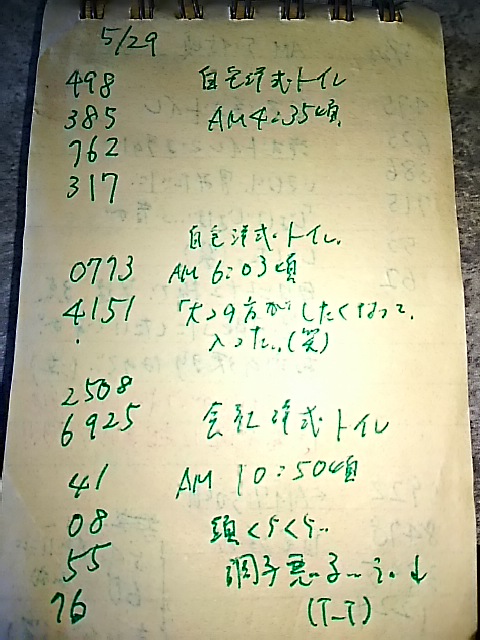 5/29
498 自宅洋式トイレ
385 AM4:35頃
762
317
自宅洋式・トイレ。
0773 AM 6:03頃
4151 「大」の方がしたくなって、
入った..(笑)
2508
6925 会社洋式・トイレ
41 AM 10:50頃
08 頭くらくら..
55 調子悪..る...↓
76 (T_T)